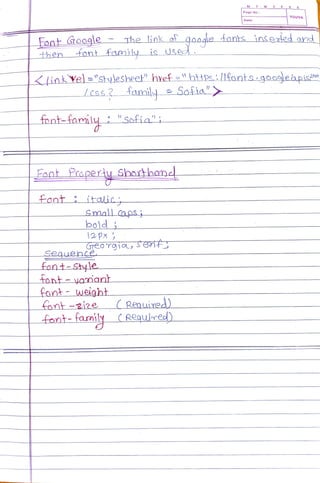 Font Google - The link of google fonts inserted and
then font family is used.
<link rel="stylesheet" href="https://fonts.googleapis.com
/css? family = Sofia">
font-family : "sofia";
Font Property Shorthand
font : italic;
small caps;
bold;
12px;
Georgia, serif;
Sequence
font-style
font-variant
font-weight
font-size (Required)
font-family (Required)